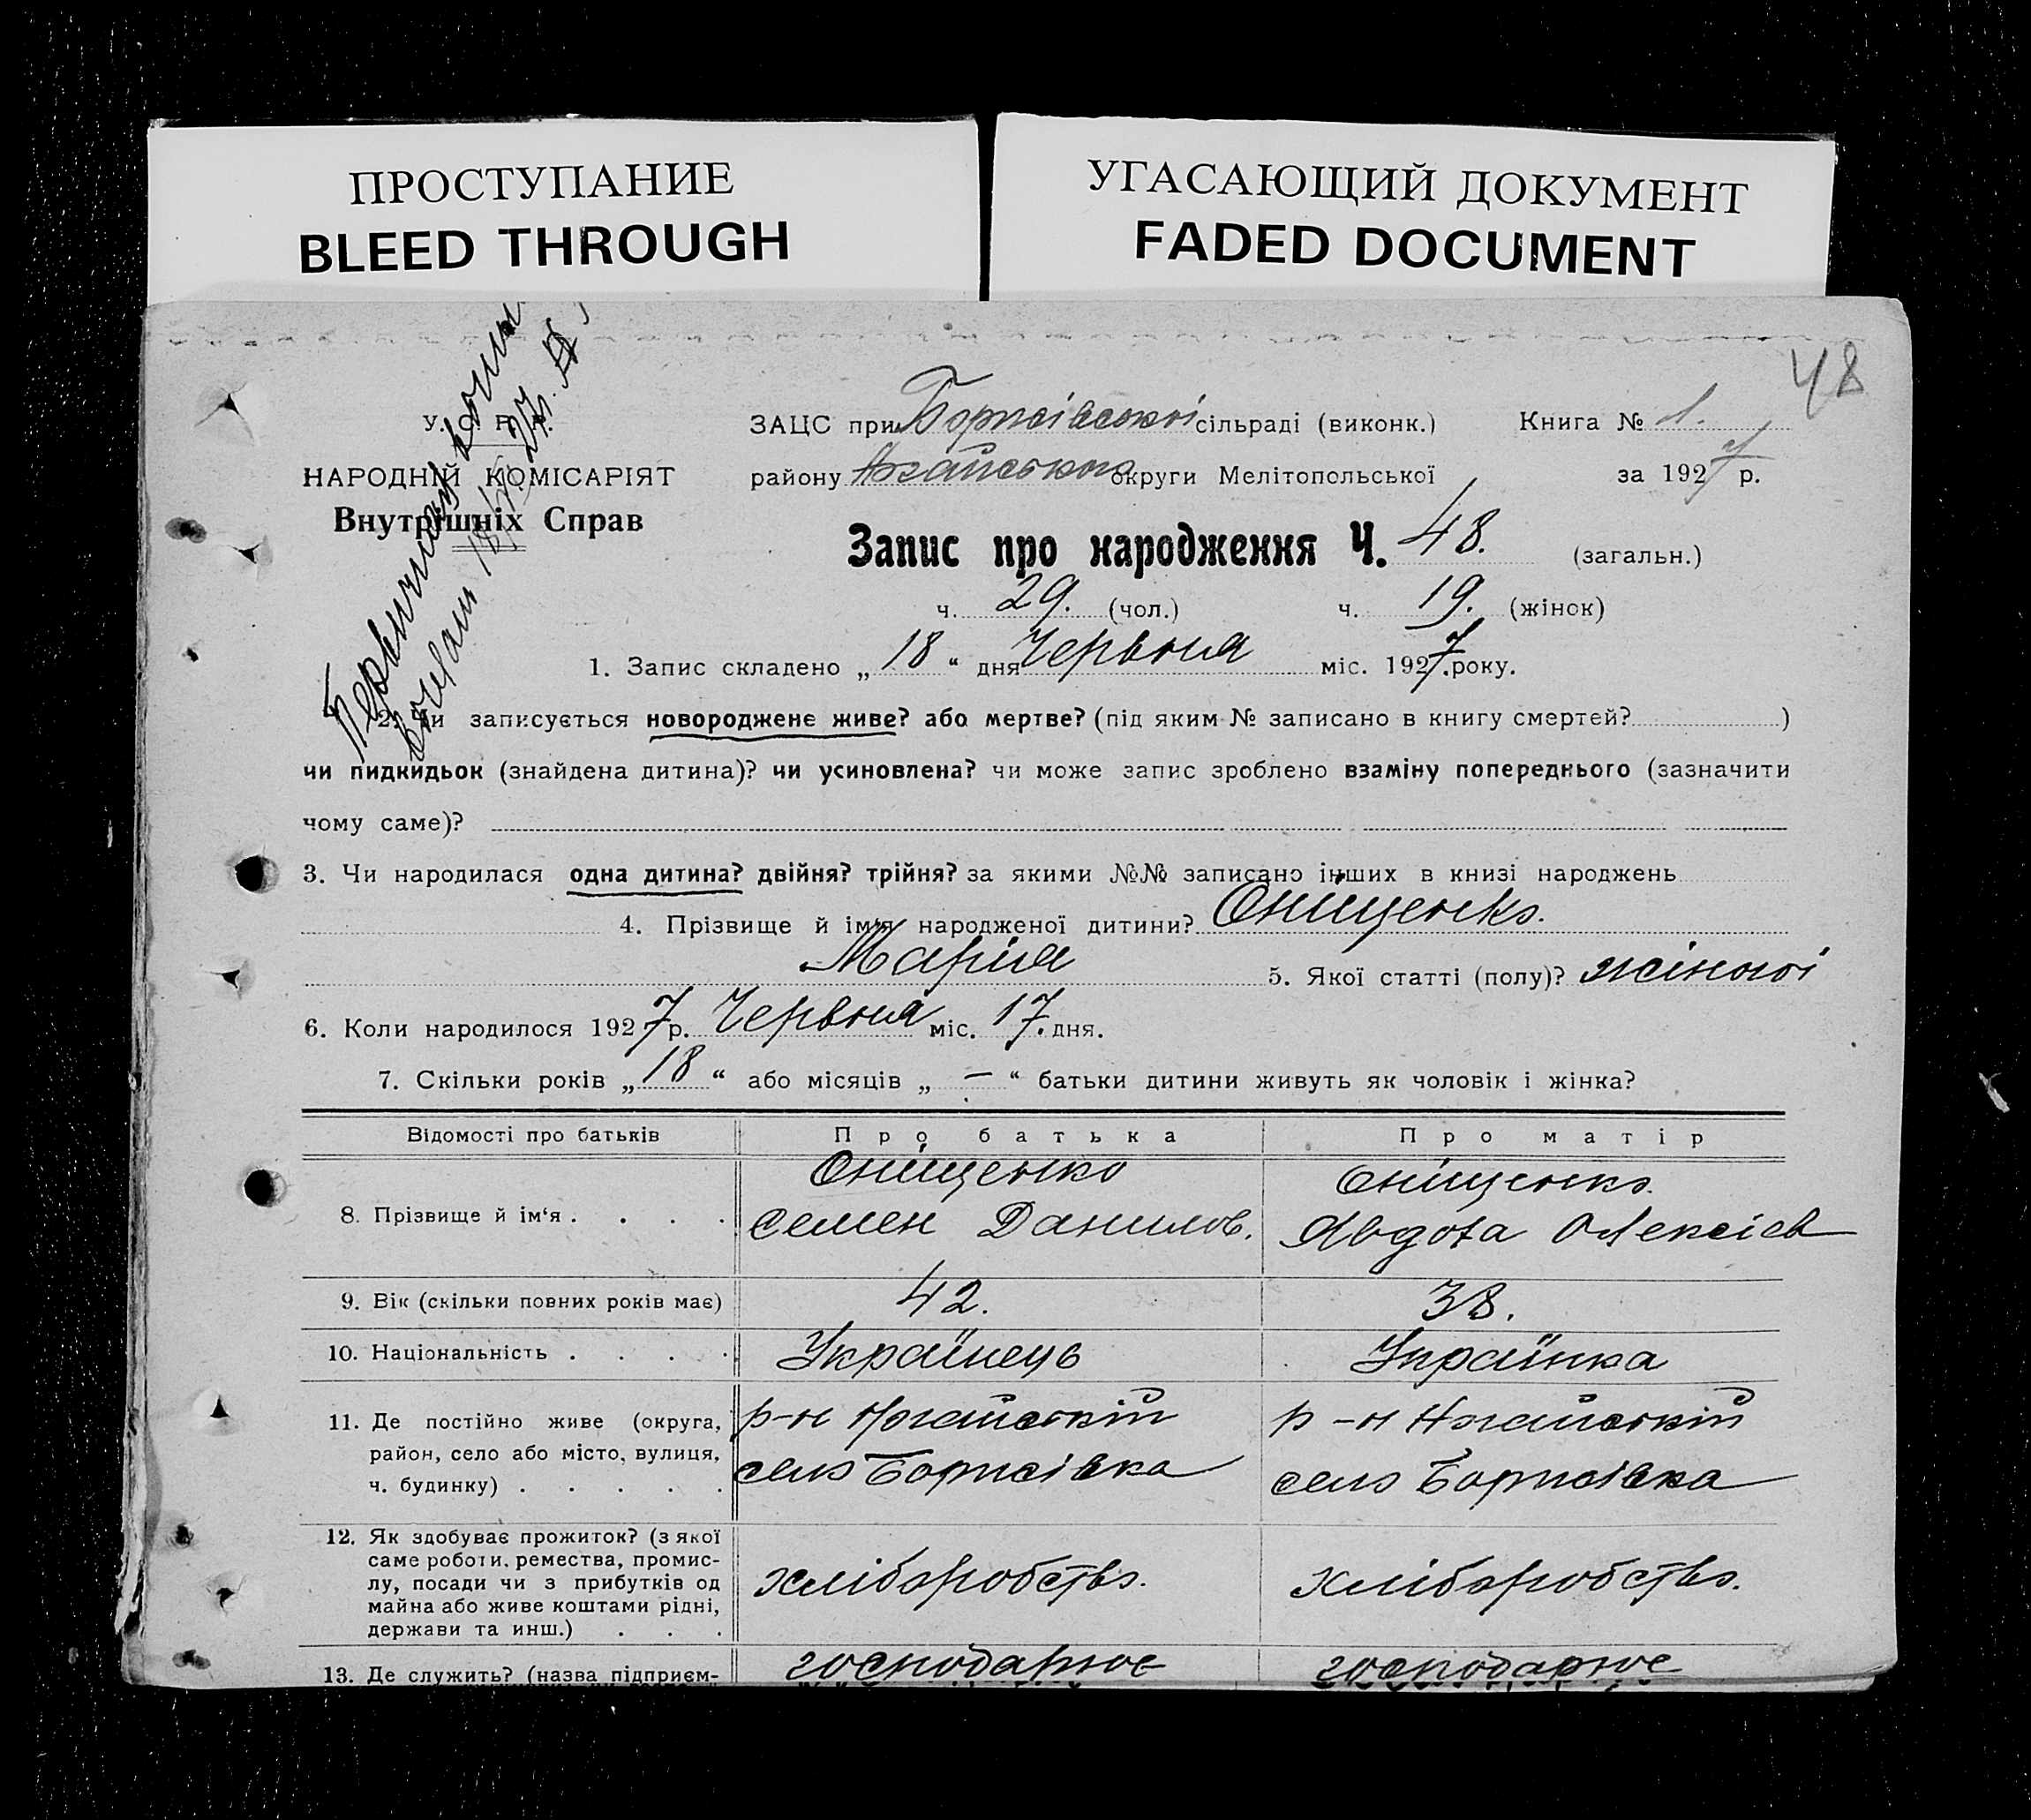 ПРОСТУПАНИЕ
BLEED THROUGH
УГАСАЮЩИЙ ДОКУМЕНТ
FADED DOCUMENT
48
У. С. Р. Р.
НАРОДНІЙ КОМІСАРІЯТ
Внутрішніх Справ
ЗАЦС при Борисівської сільраді (виконк.) Книга № 1.
району округи Мелітопольської за 1927 р.
Запис про народження Ч. 48. (загальн.)
ч. 29. (чол.) ч. 19. (жінок)
1. Запис складено „ 18 “ дня Червня міс. 1927. року.
2. Чи записується новороджене живе? або мертве? (під яким № записано в книгу смертей? )
чи пидкидьок (знайдена дитина)? чи усиновлена? чи може запис зроблено взаміну попереднього (зазначити
чому саме)?
3. Чи народилася одна дитина? двійня? трійня? за якими №№ записано інших в книзі народжень
4. Прізвище й ім'я народженої дитини? Онищенко.
Марія 5. Якої статті (полу)? жіночої
6. Коли народилося 1927 р. Червня міс. 17. дня.
7. Скільки років „ 18 “ або місяців „ — “ батьки дитини живуть як чоловік і жінка?
Відомості про батьків Про батька Про матір
8. Прізвище й ім'я . . . .
Онищенко
Семен Данилов.
Онищенко.
Явдоха Олексієв
9. Вік (скільки повних років має) 42. 38.
10. Національність . . . . Українець Українка
11. Де постійно живе (округа,
район, село або місто, вулиця,
ч. будинку) . . . . .
р-н Ногайський
село Борисівка
р-н Ногайський
село Борисівка
12. Як здобуває прожиток? (з якої
саме роботи, ремества, промис-
лу, посади чи з прибутків од
майна або живе коштами рідні,
держави та инш.) . . .
хліборобство.
хліборобство.
13. Де служить? (назва підприєм-
господарює
господарює